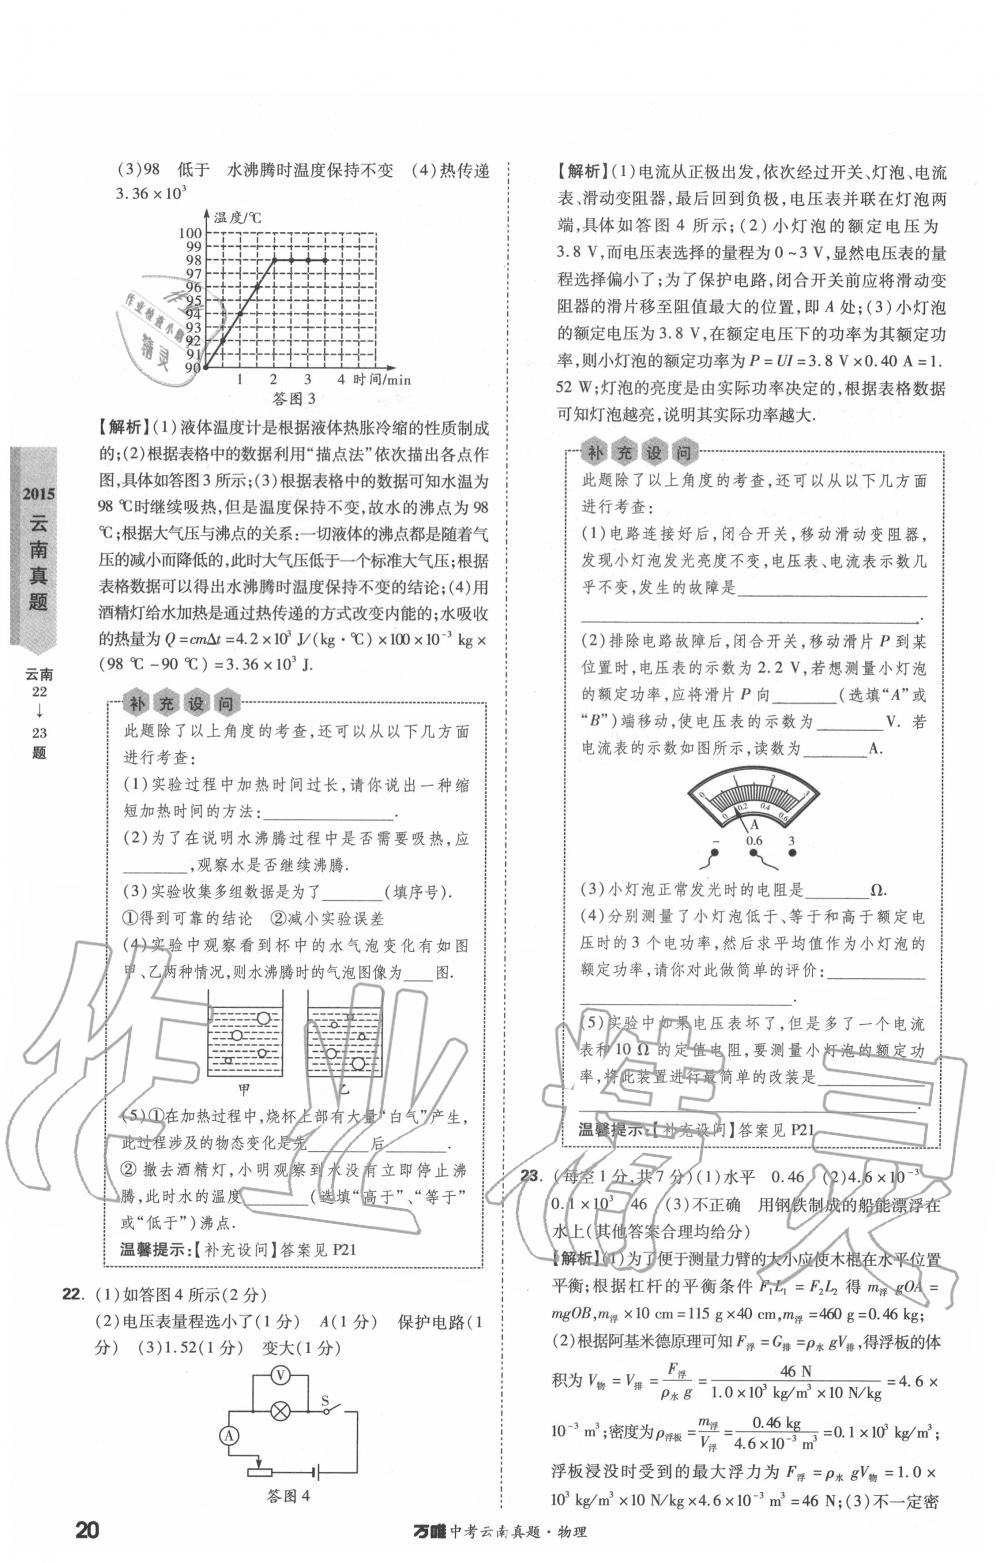 (3)98 低于 水沸腾时温度保持不变 (4)热传递
3.36×10³
温度/℃
100
99
98
97
96
95
94
93
92
91
90
1 2 3 4 时间/min
答图3
【解析】(1)液体温度计是根据液体热胀冷缩的性质制成
的;(2)根据表格中的数据利用“描点法”依次描出各点作
图,具体如答图3所示;(3)根据表格中的数据可知水温为
98 ℃时继续吸热,但是温度保持不变,故水的沸点为98
℃;根据大气压与沸点的关系:一切液体的沸点都是随着气
压的减小而降低的,此时大气压低于一个标准大气压;根据
表格数据可以得出水沸腾时温度保持不变的结论;(4)用
酒精灯给水加热是通过热传递的方式改变内能的;水吸收
的热量为Q=cmΔt=4.2×10³ J/(kg·℃)×100×10⁻³ kg×
(98 ℃-90 ℃)=3.36×10³ J.
补充设问
此题除了以上角度的考查,还可以从以下几方面
进行考查:
(1)实验过程中加热时间过长,请你说出一种缩
短加热时间的方法:____________.
(2)为了在说明水沸腾过程中是否需要吸热,应
______,观察水是否继续沸腾.
(3)实验收集多组数据是为了______(填序号).
①得到可靠的结论 ②减小实验误差
(4)实验中观察看到杯中的水气泡变化有如图
甲、乙两种情况,则水沸腾时的气泡图像为___图.
甲 乙
(5)①在加热过程中,烧杯上部有大量“白气”产生,
此过程涉及的物态变化是先______后______.
②撤去酒精灯,小明观察到水没有立即停止沸
腾,此时水的温度______(选填“高于”、“等于”
或“低于”)沸点.
温馨提示:【补充设问】答案见P21
22. (1)如答图4所示(2分)
(2)电压表量程选小了(1分) A(1分) 保护电路(1
分) (3)1.52(1分) 变大(1分)
V
S
A
答图4
【解析】(1)电流从正极出发,依次经过开关、灯泡、电流
表、滑动变阻器,最后回到负极,电压表并联在灯泡两
端,具体如答图4所示;(2)小灯泡的额定电压为
3.8 V,而电压表选择的量程为0~3 V,显然电压表的量
程选择偏小了;为了保护电路,闭合开关前应将滑动变
阻器的滑片移至阻值最大的位置,即A处;(3)小灯泡
的额定电压为3.8 V,在额定电压下的功率为其额定功
率,则小灯泡的额定功率为P=UI=3.8 V×0.40 A=1.
52 W;灯泡的亮度是由实际功率决定的,根据表格数据
可知灯泡越亮,说明其实际功率越大.
补充设问
此题除了以上角度的考查,还可以从以下几方面
进行考查:
(1)电路连接好后,闭合开关,移动滑动变阻器,
发现小灯泡发光亮度不变,电压表、电流表示数几
乎不变,发生的故障是________________
________________________________.
(2)排除电路故障后,闭合开关,移动滑片P到某
位置时,电压表的示数为2.2 V,若想测量小灯泡
的额定功率,应将滑片P向______(选填“A”或
“B”)端移动,使电压表的示数为______V. 若
电流表的示数如图所示,读数为______A.
0 1 2 3
0 0.2 0.4 0.6
A
- 0.6 3
(3)小灯泡正常发光时的电阻是______Ω.
(4)分别测量了小灯泡低于、等于和高于额定电
压时的3个电功率,然后求平均值作为小灯泡的
额定功率,请你对此做简单的评价:_________
____________________.
(5)实验中如果电压表坏了,但是多了一个电流
表和10 Ω的定值电阻,要测量小灯泡的额定功
率,将此装置进行最简单的改装是__________
________________________________.
温馨提示:【补充设问】答案见P21
23. (每空1分,共7分)(1)水平 0.46 (2)4.6×10⁻³
0.1×10³ 46 (3)不正确 用钢铁制成的船能漂浮在
水上(其他答案合理均给分)
【解析】(1)为了便于测量力臂的大小应使木棍在水平位置
平衡;根据杠杆的平衡条件F₁L₁=F₂L₂得m浮gOA=
mgOB,m浮×10 cm=115 g×40 cm,m浮=460 g=0.46 kg;
(2)根据阿基米德原理可知F浮=G排=ρ水gV排,得浮板的体
积为V物=V排=F浮/ρ水g=46 N/1.0×10³ kg/m³×10 N/kg=4.6×
10⁻³ m³;密度为ρ浮板=m浮/V浮=0.46 kg/4.6×10⁻³ m³=0.1×10³ kg/m³;
浮板浸没时受到的最大浮力为F浮=ρ水gV物=1.0×
10³ kg/m³×10 N/kg×4.6×10⁻³ m³=46 N;(3)不一定密
2015
云南真题
云南
22
↓
23
题
20
万唯中考云南真题·物理
作业检查小助手
精灵
作业精灵